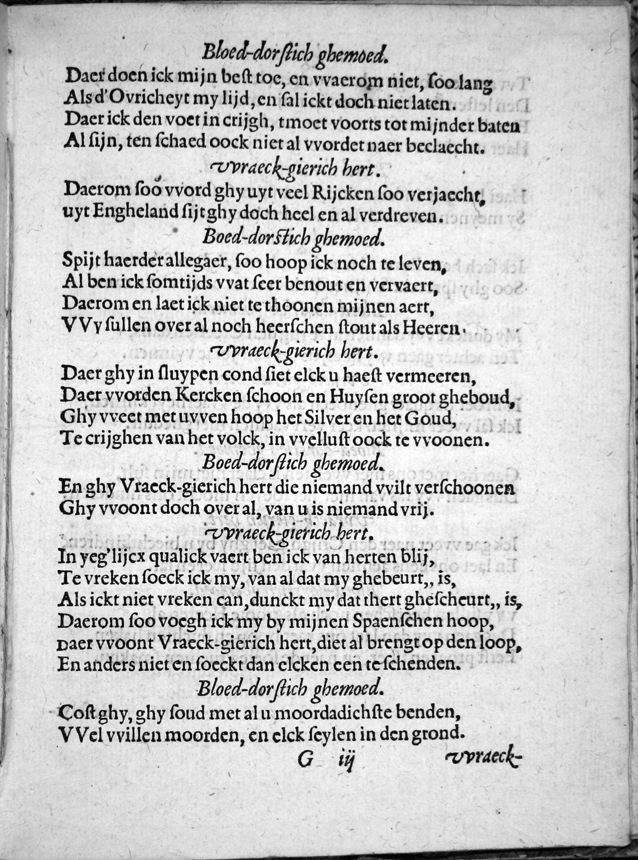 Bloed-dorſtich ghemoed.
Daer doen ick mijn beſt toe, en vvaerom niet, ſoo lang
Als d'Ovricheyt my lijd, en ſal ickt doch niet laten.
Daer ick den voet in crijgh, tmoet voorts tot mijnder baten
Al ſijn, ten ſchaed oock niet al vvordet naer beclaecht.
vvraeck-gierich hert.
Daerom ſoo vvord ghy uyt veel Rijcken ſoo verjaecht,
uyt Engheland ſijt ghy doch heel en al verdreven.
Boed-dorſtich ghemoed.
Spijt haerder allegaer, ſoo hoop ick noch te leven,
Al ben ick ſomtijds vvat ſeer benout en vervaert,
Daerom en laet ick niet te thoonen mijnen aert,
VVy ſullen over al noch heerſchen ſtout als Heeren.
vvraeck-gierich hert.
Daer ghy in ſluypen cond ſiet elck u haeſt vermeeren,
Daer vvorden Kercken ſchoon en Huyſen groot gheboud,
Ghy vveet met uvven hoop het Silver en het Goud,
Te crijghen van het volck, in vvelluſt oock te vvoonen.
Boed-dorſtich ghemoed.
En ghy Vraeck-gierich hert die niemand vvilt verſchoonen
Ghy vvoont doch over al, van u is niemand vrij.
vvraeck-gierich hert.
In yeg'lijcx qualick vaert ben ick van herten blij,
Te vreken ſoeck ick my, van al dat my ghebeurt,, is,
Als ickt niet vreken can, dunckt my dat thert gheſcheurt,, is,
Daerom ſoo voegh ick my by mijnen Spaenſchen hoop,
Daer vvoont Vraeck-gierich hert, diet al brengt op den loop,
En anders niet en ſoeckt dan elcken een te ſchenden.
Bloed-dorſtich ghemoed.
Coſt ghy, ghy ſoud met al u moordadichſte benden,
VVel vvillen moorden, en elck ſeylen in den grond.
G iij vvraeck-